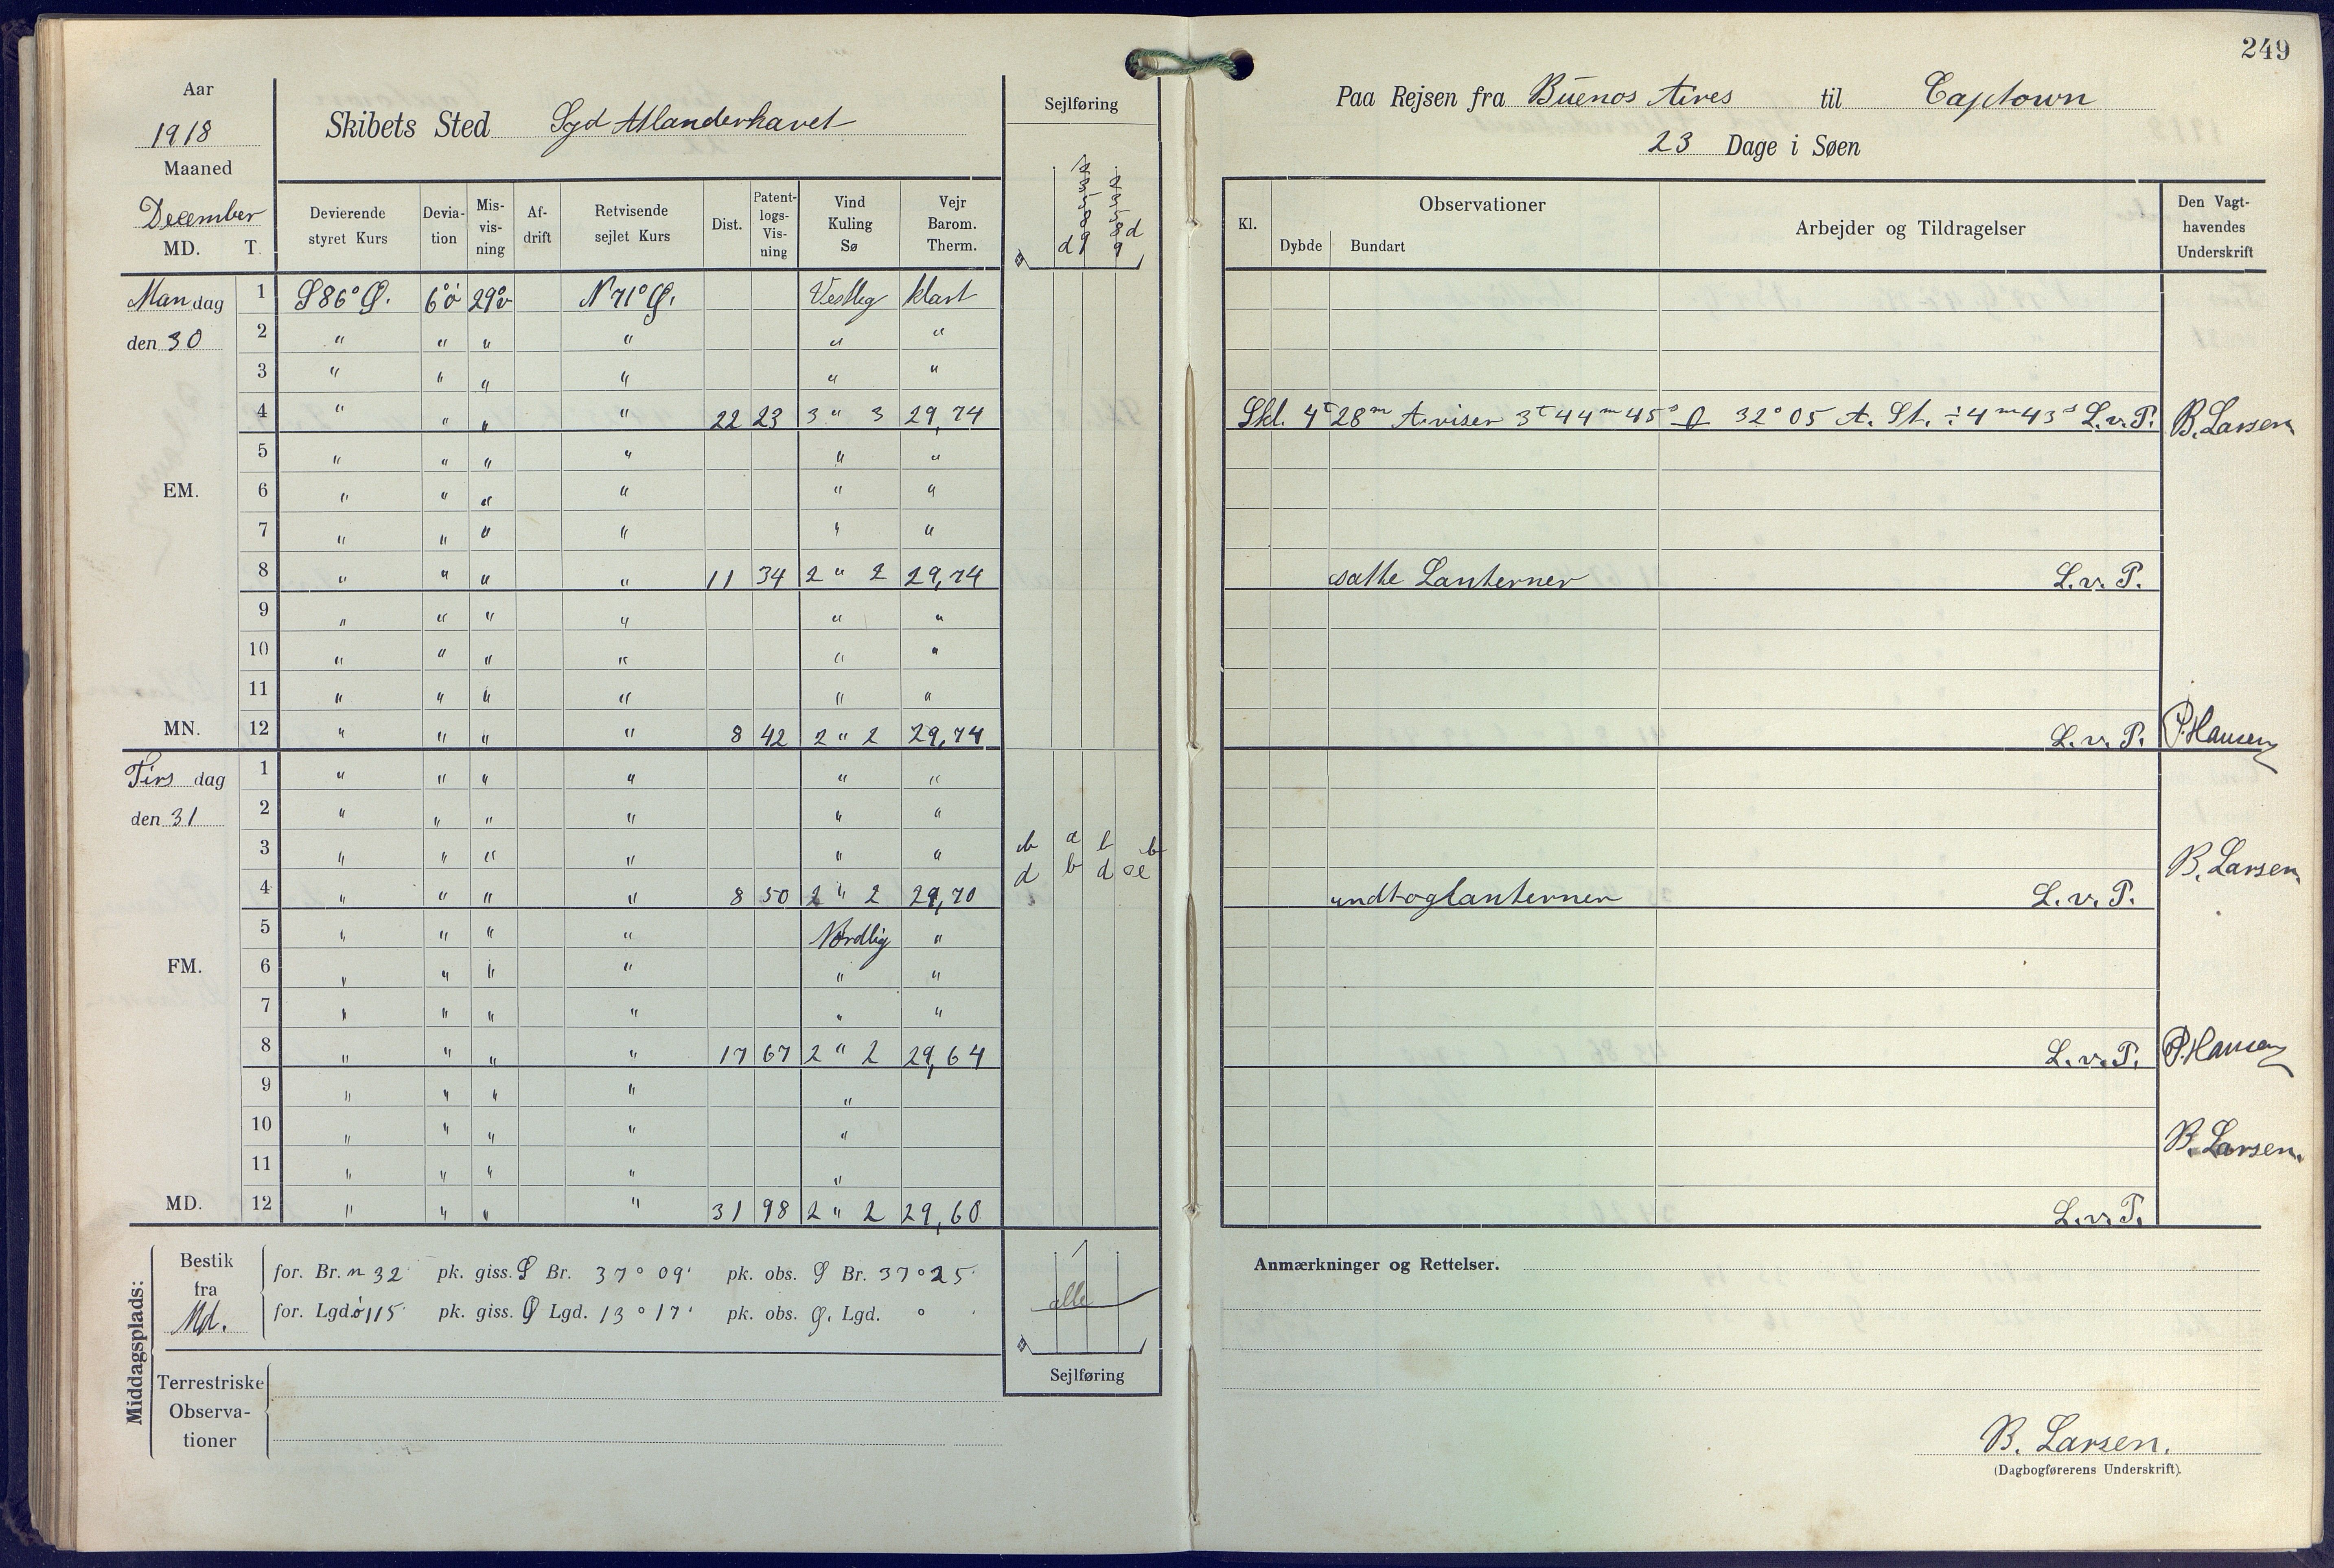 249
Aar
1918
Maaned
December
MD. T.
Skibets Sted Syd Atlanderhavet
Sejlføring
Paa Rejsen fra Buenos Aires til Captown
23 Dage i Søen
Devierende styret Kurs | Devia-tion | Mis-vis-ning | Af-drift | Retvisende sejlet Kurs | Dist. | Patent-logs-Vis-ning | Vind Kuling Sø | Vejr Barom. Therm.
Kl. | Observationer | Dybde | Bundart | Arbejder og Tildragelser | Den Vagt-havendes Underskrift
Mandag 1 S 86° Ø. 6°ö 29°v N 71° Ø. Vestlig klart
den 30 2 " " " " " "
3 " " " " " "
4 " " " " 22 23 3 " 3 29,74 Skl. 4t 28m A.viser 3t 44m 45s 32° 05 A. St. ÷ 4m 43s L.v.P. B. Larsen
5 " " " " " "
EM. 6 " " " " " "
7 " " " " " "
8 " " " " 11 34 2 " 2 29,74 satte Lanterner L.v.P.
9 " " " " " "
10 " " " " " "
11 " " " " " "
MN. 12 " " " " 8 42 2 " 2 29,74 L.v.P. P. Hansen
Tirsdag 1 " " " " " "
den 31 2 " " " " " "
3 " " " " " " B. Larsen
4 " " " " 8 50 2 " 2 29,70 undtoglanterner L.v.P.
5 " " " " Nordlig "
FM. 6 " " " " " "
7 " " " " " "
8 " " " " 17 67 2 " 2 29,64 L.v.P. P. Hansen
9 " " " " "
10 " " " " " B. Larsen.
11 " " " " "
MD. 12 " " " " 31 98 2 " 2 29,60 L.v.P.
Middagsplads:
Bestik fra Md.
for. Br. n 32' pk. giss. S Br. 37° 09' pk. obs. S Br. 37° 25'
for. Lgd. ö 115' pk. giss. Ø Lgd. 13° 17' pk. obs. Ø. Lgd. ° '
alle
Sejlføring
Terrestriske Observa-tioner
Anmærkninger og Rettelser.
B. Larsen.
(Dagbogførerens Underskrift).